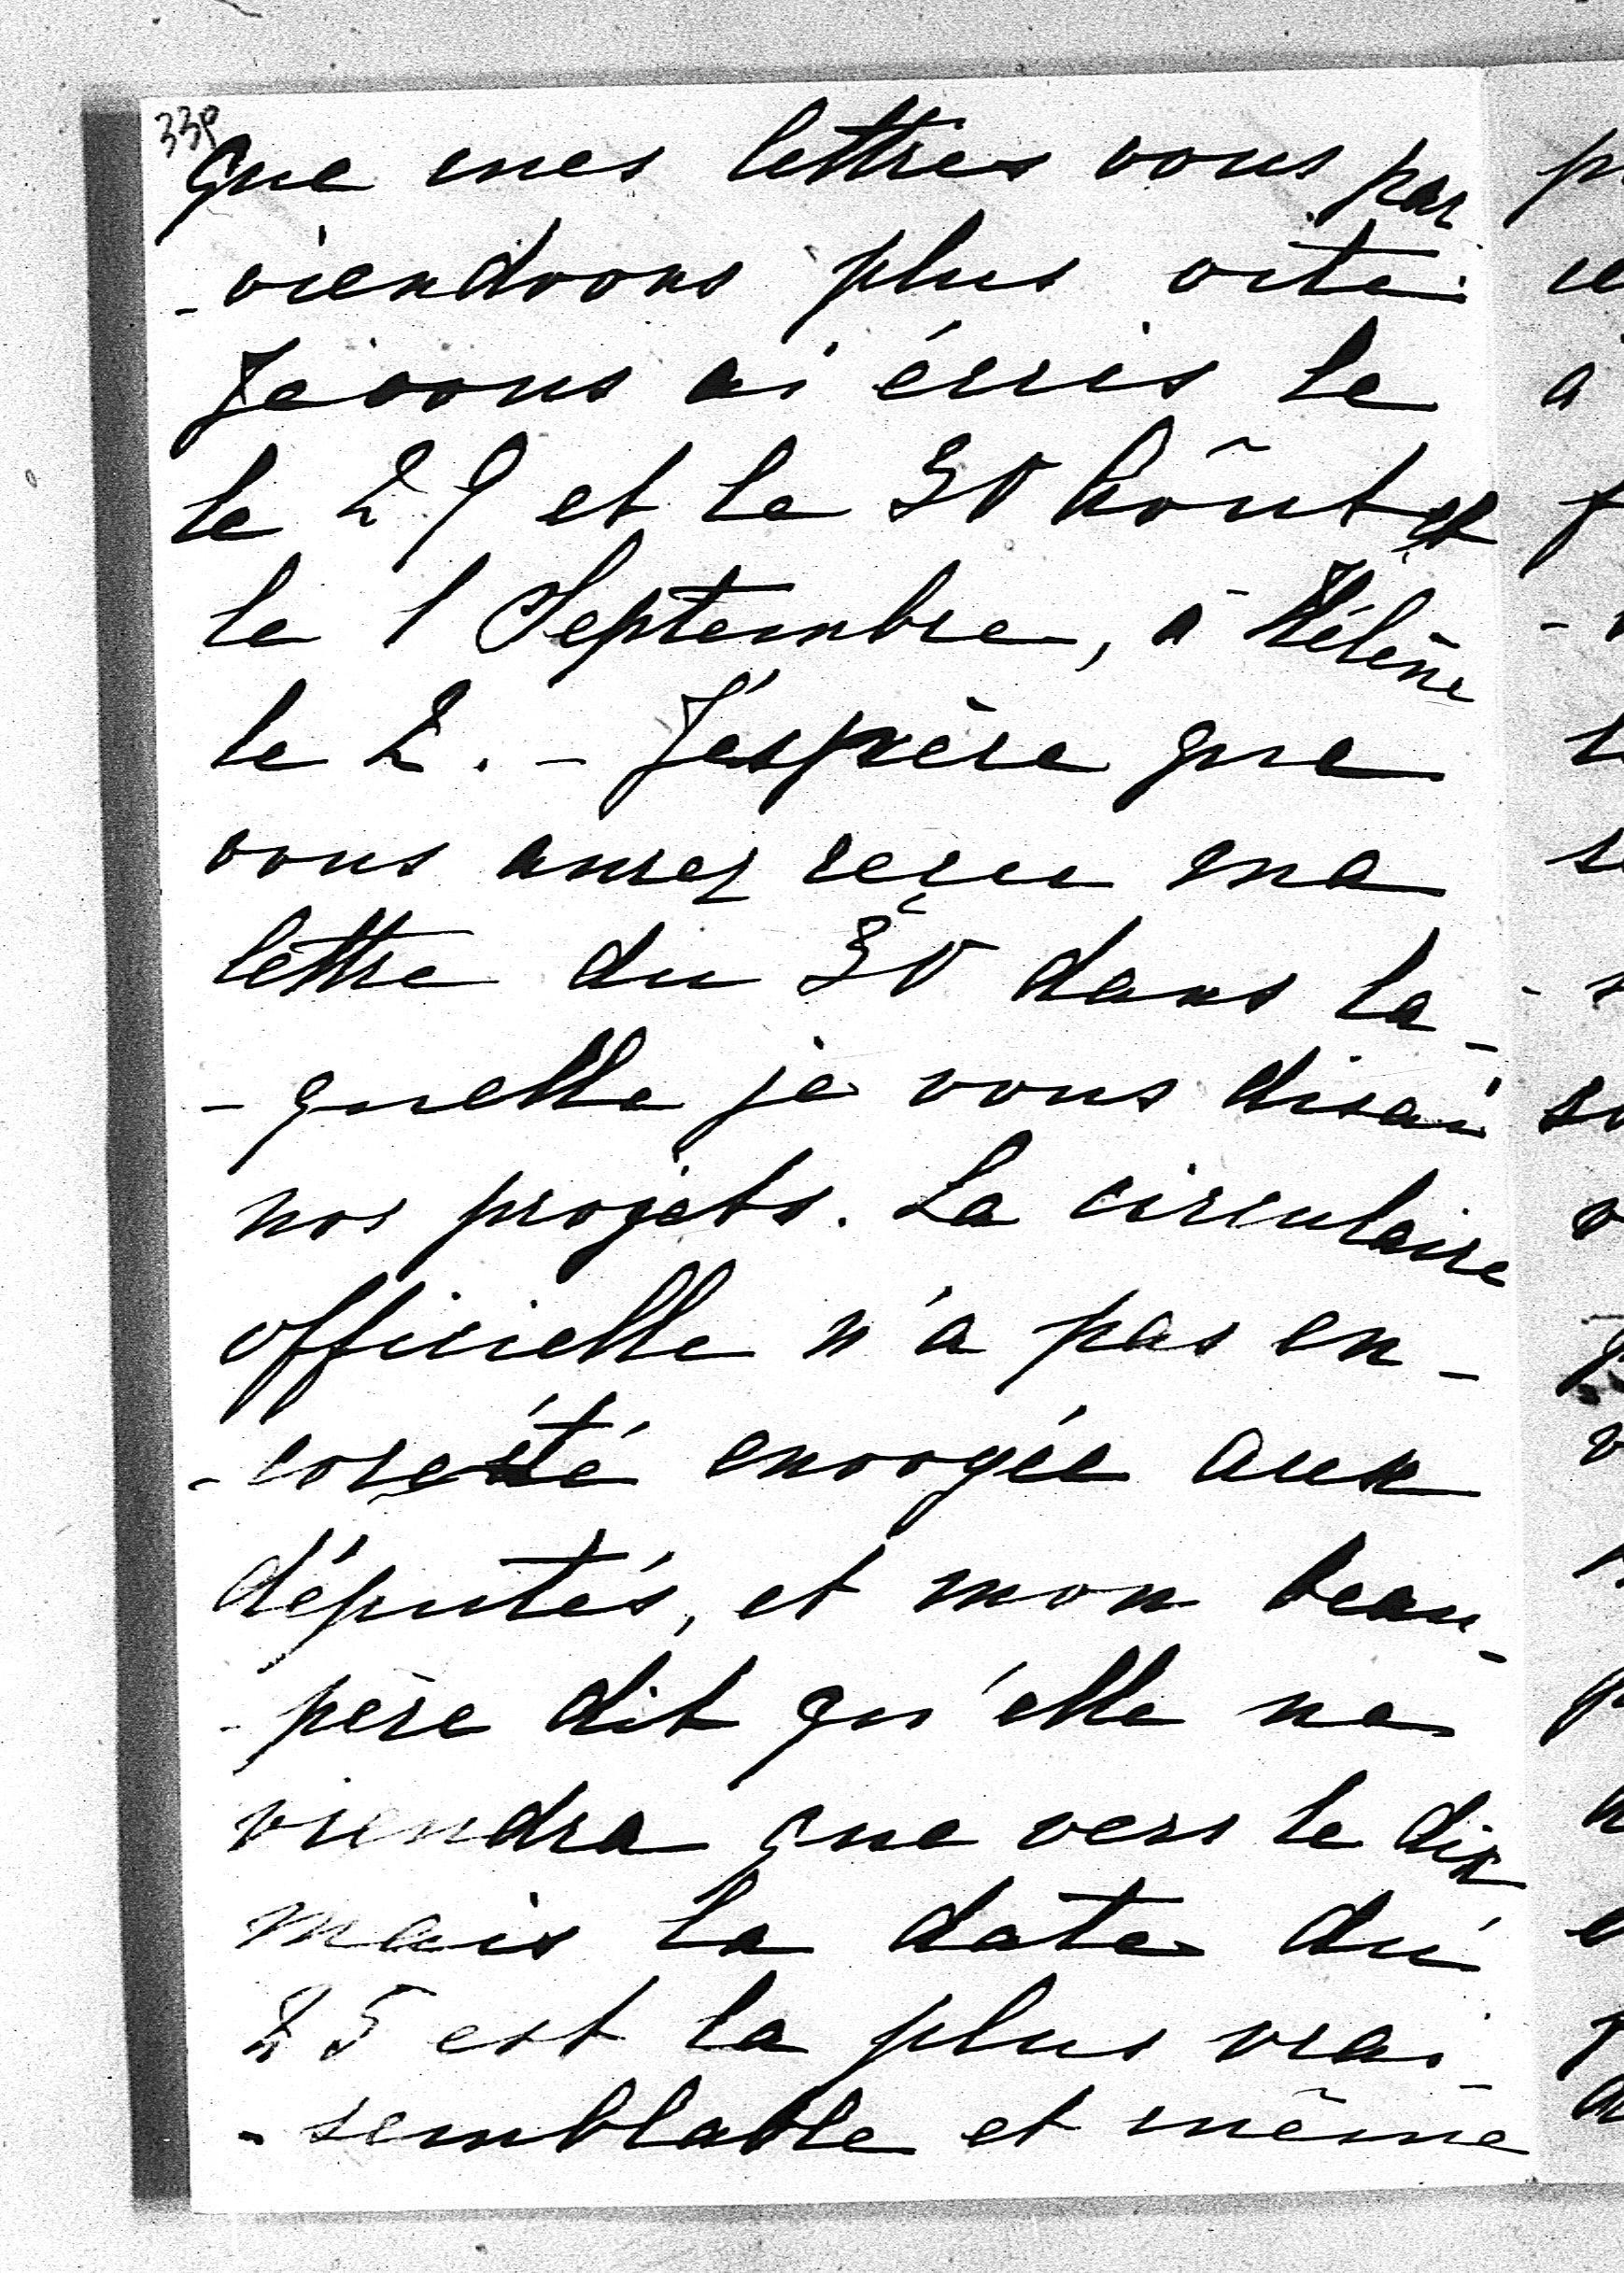 339
que mes lettres vous par
-viendrons plus vite.
Je vous ai écris le
le 29 et le 30 Août et
le 1 Septembre, à Hélène
le 2. - J'espère que
vous aurez reçu ma
lettre du 30 dans la-
-quelle je vous disai
nos projets. La circulaire
officielle n'a pas en-
-core été envoyée aux
députés, et mon beau-
-père dit qu'elle ne
viendra que vers le dix
mais la date du
25 est la plus vrai-
-semblable et même